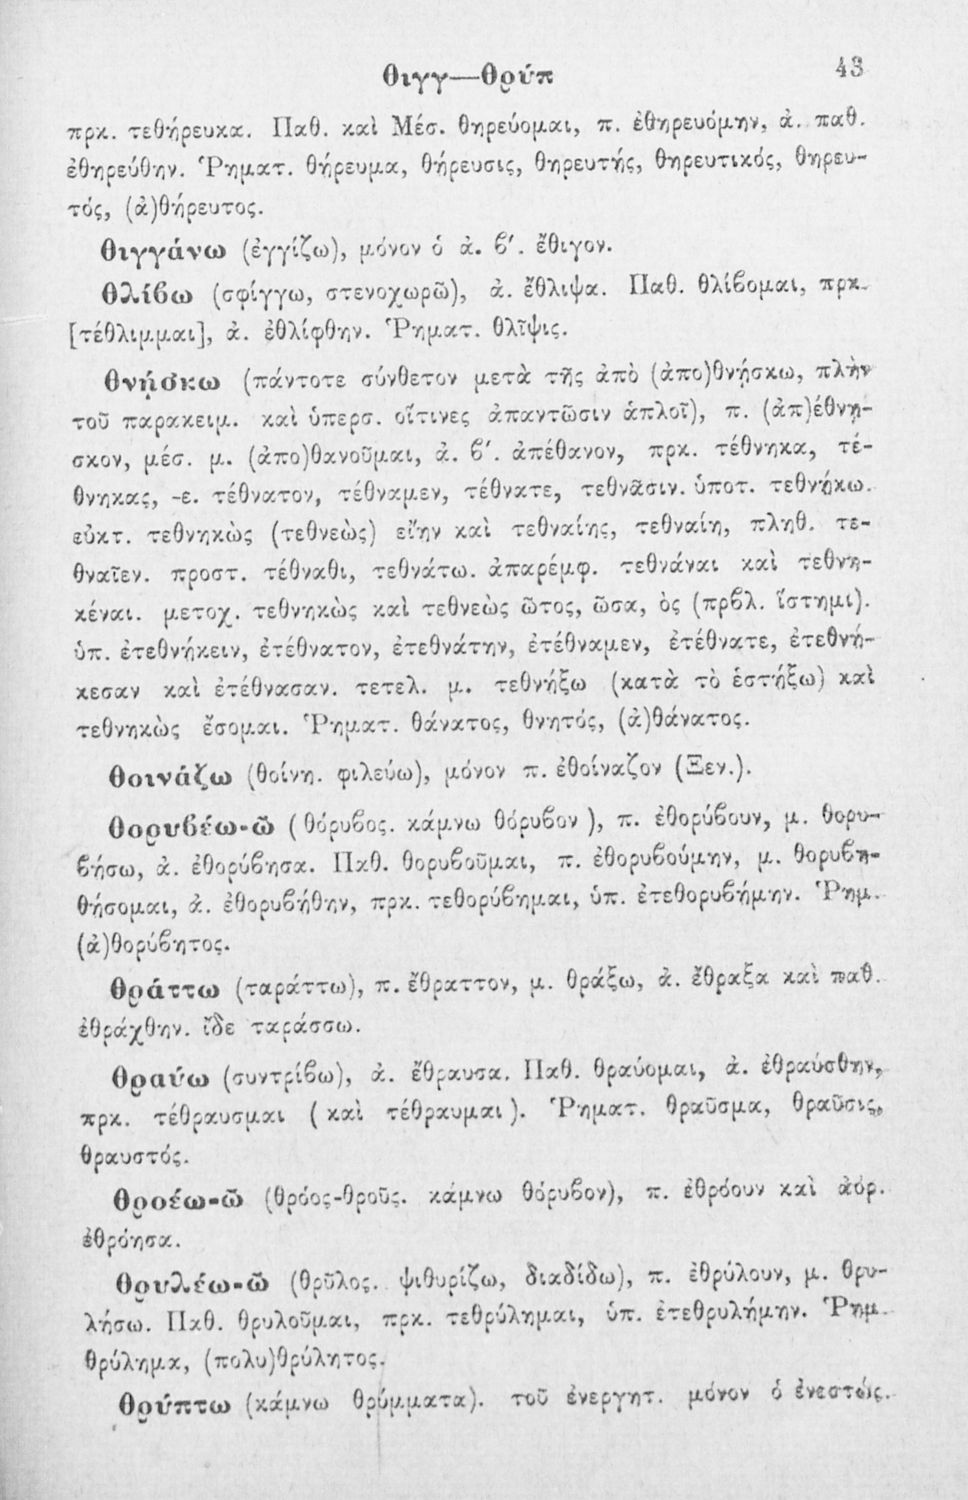 θιγγ—θρύπ
43
πρκ. τεθήρευκα. Παθ. καὶ Μέσ. θηρεύομαι, π. ἐθηρευόμην, ἀ. παθ.
ἐθηρεύθην. Ῥηματ. θήρευμα, θήρευσις, θηρευτής, θηρευτικός, θηρευ-
τός, (ἀ)θήρευτος.
θιγγάνω (ἐγγίζω), μόνον ὁ ἀ. ϐʹ. ἔθιγον.
θλίϐω (σφίγγω, στενοχωρῶ), ἀ. ἔθλιψα. Παθ. θλίϐομαι, πρκ.
[τέθλιμμαι], ἀ. ἐθλίφθην. Ῥηματ. θλῖψις.
θνήσκω (πάντοτε σύνθετον μετὰ τῆς ἀπὸ (ἀπο)θνήσκω, πλὴν
τοῦ παρακειμ. καὶ ὑπερσ. οἵτινες ἀπαντῶσιν ἁπλοῖ), π. (ἀπ)έθνη-
σκον, μέσ. μ. (ἀπο)θανοῦμαι, ἀ. ϐʹ. ἀπέθανον, πρκ. τέθνηκα, τέ-
θνηκας, -ε. τέθνατον, τέθναμεν, τέθνατε, τεθνᾶσιν. ὑποτ. τεθνήκω.
εὐκτ. τεθνηκὼς (τεθνεὼς) εἴην καὶ τεθναίης, τεθναίη, πληθ. τε-
θναῖεν. προστ. τέθναθι, τεθνάτω. ἀπαρέμφ. τεθνάναι καὶ τεθνη-
κέναι. μετοχ. τεθνηκὼς καὶ τεθνεὼς ῶτος, ῶσα, ὸς (πρϐλ. ἵστημι).
ὑπ. ἐτεθνήκειν, ἐτέθνατον, ἐτεθνάτην, ἐτέθναμεν, ἐτέθνατε, ἐτεθνή-
κεσαν καὶ ἐτέθνασαν. τετελ. μ. τεθνήξω (κατὰ τὸ ἑστήξω) καὶ
τεθνηκὼς ἔσομαι. Ῥηματ. θάνατος, θνητός, (ἀ)θάνατος.
θοινάζω (θοίνη. φιλεύω), μόνον π. ἐθοίναζον (Ξεν.).
θορυϐέω-ῶ (θόρυϐος. κάμνω θόρυϐον), π. ἐθορύϐουν, μ. θορυ-
ϐήσω, ἀ. ἐθορύϐησα. Παθ. θορυϐοῦμαι, π. ἐθορυϐούμην, μ. θορυϐη-
θήσομαι, ἀ. ἐθορυϐήθην, πρκ. τεθορύϐημαι, ὑπ. ἐτεθορυϐήμην. Ῥημ.
(ἀ)θορύϐητος.
θράττω (ταράττω), π. ἔθραττον, μ. θράξω, ἀ. ἔθραξα καὶ παθ.
ἐθράχθην. ἴδε ταράσσω.
θραύω (συντρίϐω), ἀ. ἔθραυσα. Παθ. θραύομαι, ἀ. ἐθραύσθην,
πρκ. τέθραυσμαι (καὶ τέθραυμαι). Ῥηματ. θραῦσμα, θραῦσις,
θραυστός.
θροέω-ῶ (θρόος-θροῦς. κάμνω θόρυϐον), π. ἐθρόουν καὶ ἀόρ.
ἐθρόησα.
θρυλέω-ῶ (θρῦλος. ψιθυρίζω, διαδίδω), π. ἐθρύλουν, μ. θρυ-
λήσω. Παθ. θρυλοῦμαι, πρκ. τεθρύλημαι, ὑπ. ἐτεθρυλήμην. Ῥημ.
θρύλημα, (πολυ)θρύλητος.
θρύπτω (κάμνω θρύμματα). τοῦ ἐνεργητ. μόνον ὁ ἐνεστώς.